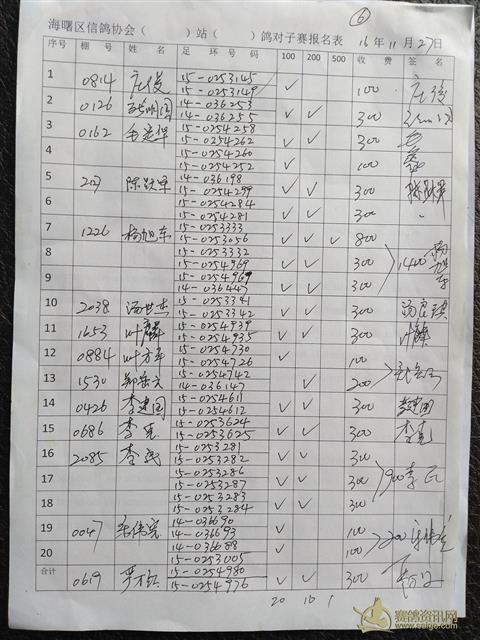 ⑥
海曙区信鸽协会（ ）站（ ）鸽对子赛报名表 16年11月27日
序号 棚号 姓名 足环号码 100 200 500 收费 签名
1 0814 庄俊 15-0253145 ✓ 100 庄俊
15-0253149
2 0126 14-036253 ✓ ✓ 300
14-036255
3 0162 15-0254258 ✓ ✓ 300
15-0254262
4 15-0254260 ✓ 100
15-0254252
5 207 陈跃军 14-036198 ✓ ✓ 300
15-0254299
6 15-0254284 ✓ ✓ 300 〃
15-0254281
7 1226 杨旭东 15-0253333 ✓ ✓ ✓ 800
15-0253056
8 15-0253332 ✓ ✓ 300 1400 杨旭东
15-0254969
9 15-0254969 ✓ ✓ 300
14-036447
10 2038 汤世杰 15-0253341 ✓ ✓ 300
15-0253342
11 1653 叶麟 15-0254939 ✓ ✓ 300 叶麟
15-0254935
12 0884 叶方平 15-0254730 ✓ 100
15-0254726
13 1530 15-0254742 ✓ 200
14-036147
14 0426 李建国 15-0254611 ✓ ✓ 300 李建国
15-0254612
15 0686 李克 15-0253624 ✓ ✓ 300 李克
15-0253625
16 2085 李民 15-0253281 ✓ ✓ 300
15-0253282
17 15-0253286 ✓ ✓ 300 900 李民
15-0253287
18 15-0253283 ✓ ✓ 300
15-0253284
19 0047 14-036690 ✓ 100 200
14-036693
20 14-036688 ✓ 100
15-0253005
合计 0619 15-0254980 ✓ ✓ 300
15-0254976
20 16 1
赛鸽资讯网
www.saige.com